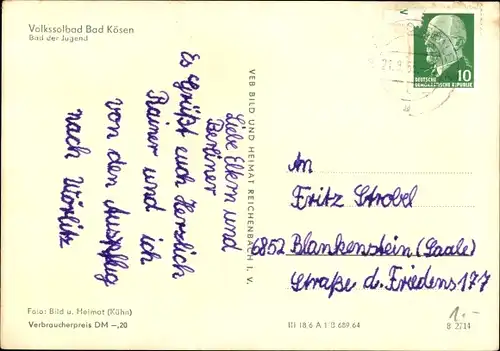 Volkssolbad Bad Kösen
Bad der Jugend
Liebe Eltern und
Berliner
Es grüßt euch Herzlich
Rainer und ich
von den Ausflug
nach Wörlitz
VEB BILD UND HEIMAT REICHENBACH I. V.
DEUTSCHE
DEMOKRATISCHE REPUBLIK
10
An
Fritz Strobel
6852 Blankenstein (Saale)
Straße d. Friedens 177
Foto: Bild u. Heimat (Kühn)
Verbraucherpreis DM –,20
III 18 6 A 1 B 689 64
1.-
B 2714